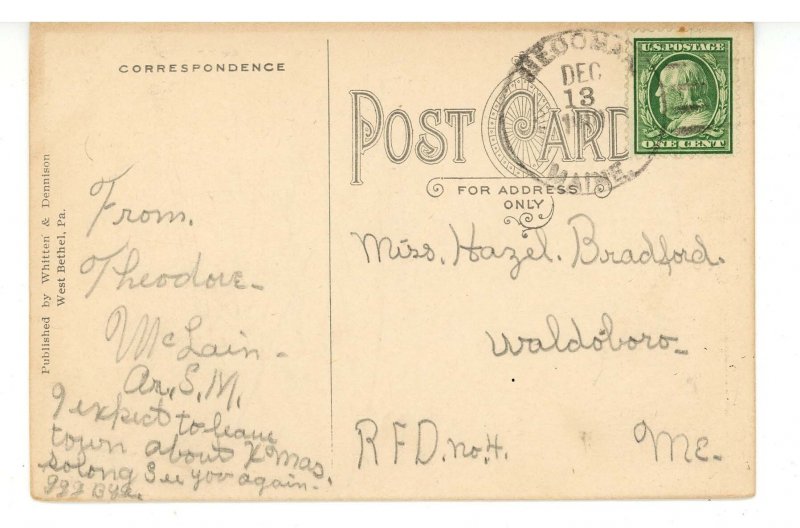 CORRESPONDENCE
POST CARD
FOR ADDRESS
ONLY
MEDOMAK
DEC
13
MAINE.
U.S. POSTAGE
ONE CENT
Published by Whitten & Dennison
West Bethel, Pa.
From.
Theodore
McLain
An, S, M,
I expect to leave
town about Xmas.
so long See you again.
Miss. Hazel. Bradford.
Waldoboro
R F D. no, 4.
Me.